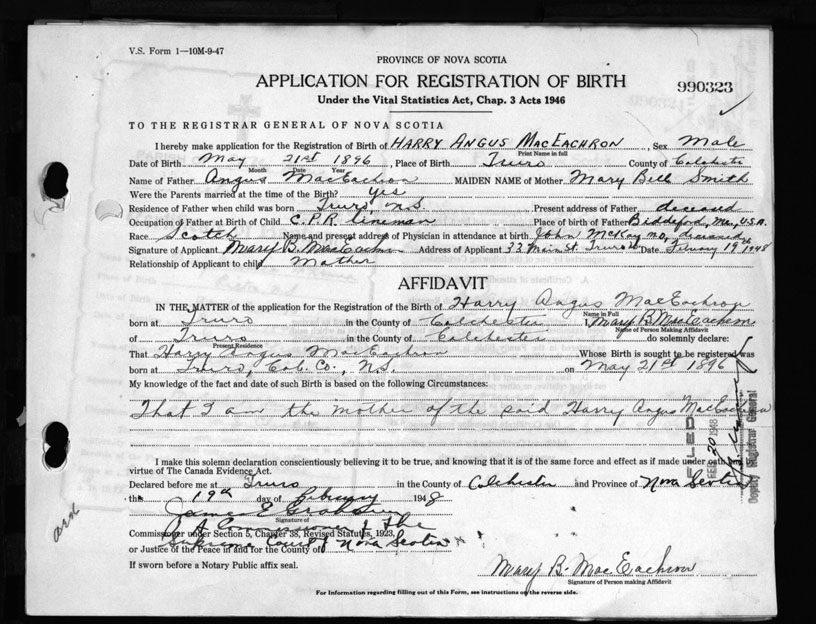 V.S. Form 1—10M-9-47
PROVINCE OF NOVA SCOTIA
APPLICATION FOR REGISTRATION OF BIRTH
990323
Under the Vital Statistics Act, Chap. 3 Acts 1946
TO THE REGISTRAR GENERAL OF NOVA SCOTIA
I hereby make application for the Registration of Birth of HARRY ANGUS MACEACHRON, Sex Male
Print Name in full
Date of Birth May 21st 1896, Place of Birth Truro County of Colchester
Month Date Year
Name of Father Angus MacEachron MAIDEN NAME of Mother Mary Bell Smith
Were the Parents married at the time of the Birth? yes
Residence of Father when child was born Truro, N.S. Present address of Father deceased
Occupation of Father at Birth of Child C.P.R. Lineman Place of birth of Father Biddeford, Me., U.S.A.
Race Scotch Name and present address of Physician in attendance at birth John McKay M.D., deceased
Signature of Applicant Mary B. MacEachron Address of Applicant 33 Main St. Truro Date 19th 1948
Relationship of Applicant to child Mother
AFFIDAVIT
IN THE MATTER of the application for the Registration of the Birth of Harry Angus MacEachron
Name in Full
born at Truro in the County of Colchester I, Mary B. MacEachron
Name of Person Making Affidavit
of Truro in the County of Colchester do solemnly declare:
Present Residence
That Harry Angus MacEachron Whose Birth is sought to be registered was
born at Truro, Col. Co., N.S. on May 21st 1896
My knowledge of the fact and date of such Birth is based on the following Circumstances:
That I am the mother of the said Harry Angus MacEachron
FILED
FEB 20 1948
Deputy Registrar General
I make this solemn declaration conscientiously believing it to be true, and knowing that it is of the same force and effect as if made under oath by
virtue of The Canada Evidence Act.
Declared before me at Truro in the County of Colchester and Province of Nova Scotia
this 19th day of February 1948
James E.
Signature of
A Commissioner of the
Commissioner under Section 5, Chapter 38, Revised Statutes, 1923,
Supreme Court of Nova Scotia
or Justice of the Peace in and for the County of
If sworn before a Notary Public affix seal.
Mary B. MacEachron
Signature of Person making Affidavit
For Information regarding filling out of this Form, see instructions on the reverse side.